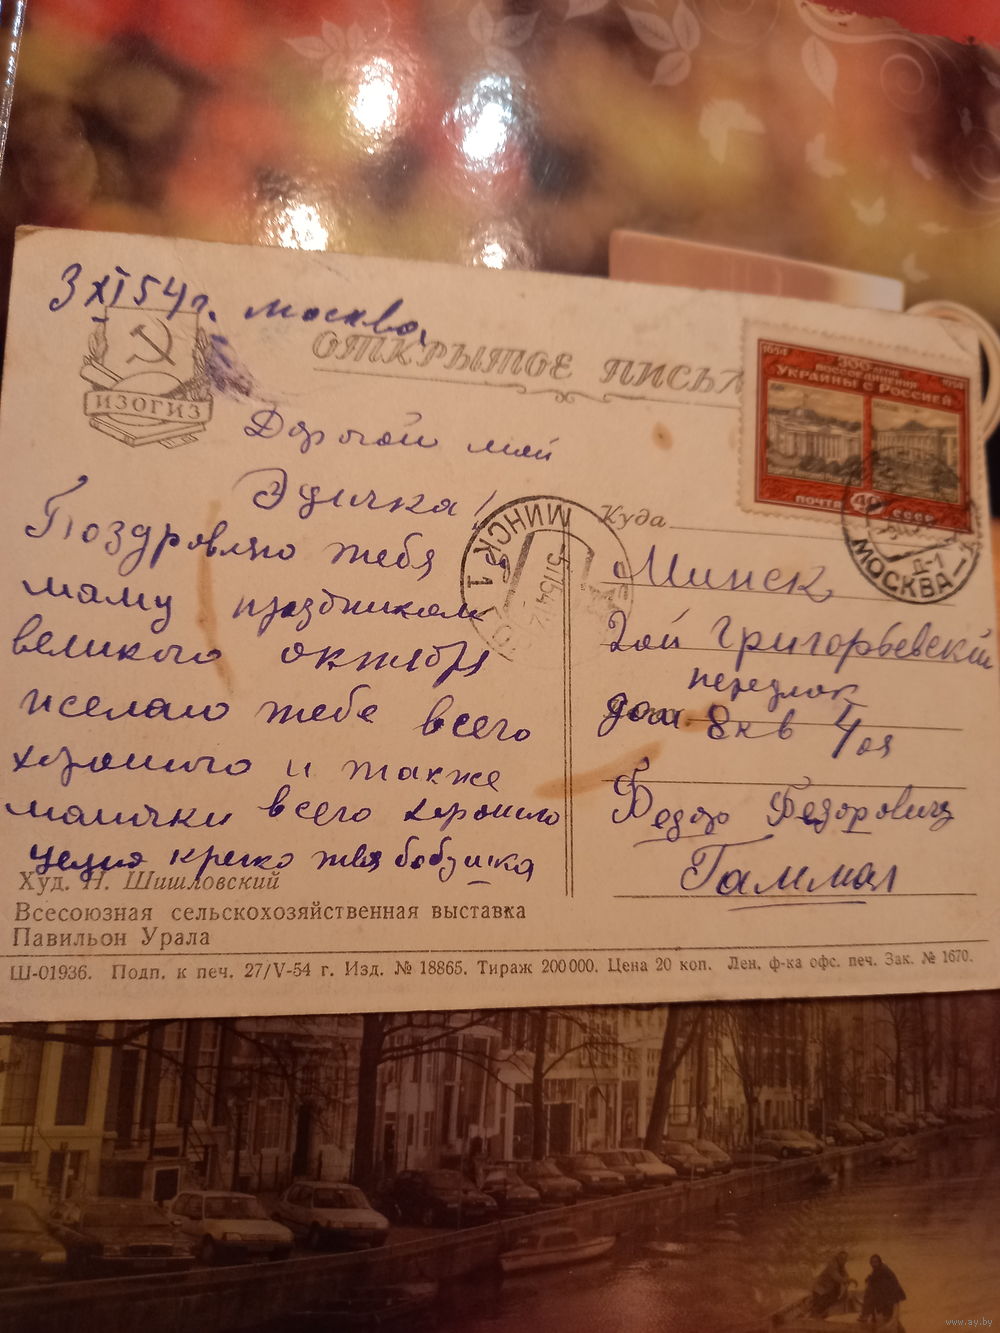 3 XI 54 г. Москва.
ИЗОГИЗ
ОТКРЫТОЕ ПИСЬМ
1654 1954
300-ЛЕТИЕ
ВОССОЕДИНЕНИЯ
УКРАИНЫ С РОССИЕЙ
ПОЧТА 40 СССР
МОСКВА Д-1
МИНСК 1
Дорогой мой
Эдичка!
Поздровляю тебя
маму празбником
великого октября
желаю тебе всего
хорошого и также
мамочки всего хорошило
целую крепко твя бобушка
Куда
Минск
2ой Григорьевский
переулок
дом 8 кв 4оя
Федор Федорович
Гаммал
Худ. Н. Шишловский
Всесоюзная сельскохозяйственная выставка
Павильон Урала
Ш-01936. Подп. к печ. 27/V-54 г. Изд. № 18865. Тираж 200 000. Цена 20 коп. Лен. ф-ка офс. печ. Зак. № 1670.
www.ay.by